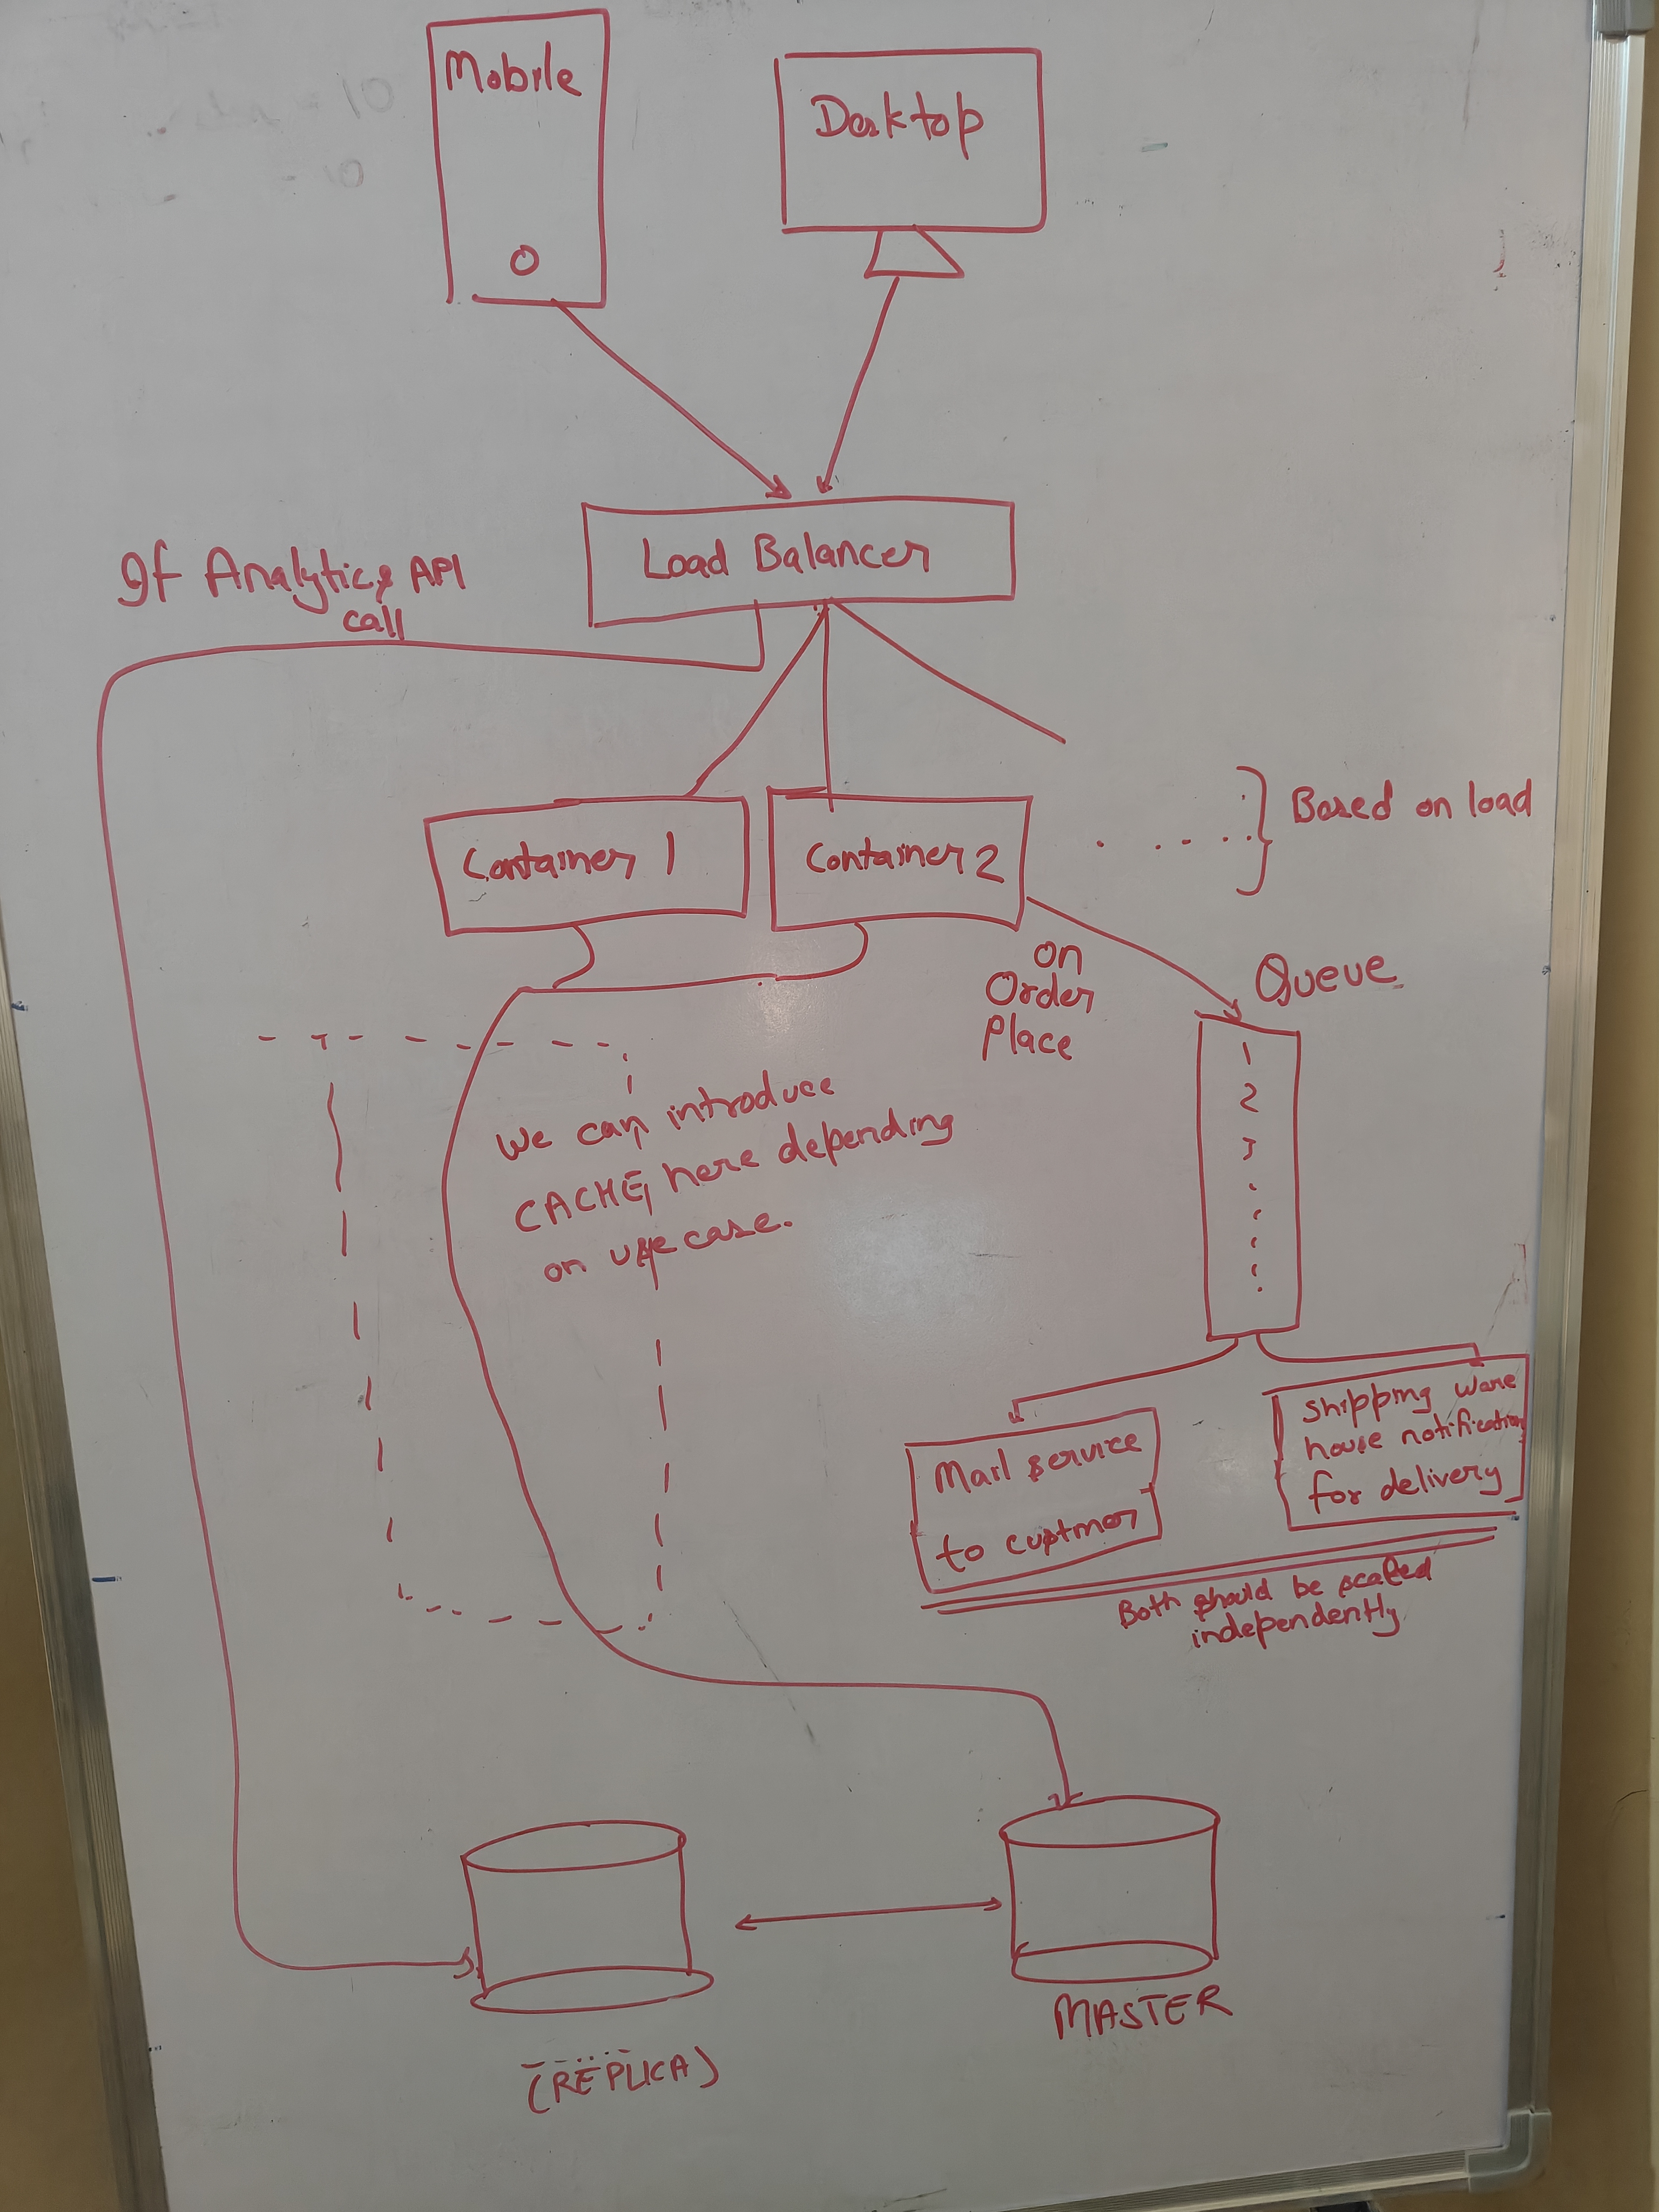 Mobile
Desktop
Load Balancer
If Analytics API
call
Based on load
Container 1
Container 2
on
Order
Place
Queue
1
2
3
We can introduce
CACHE, here depending
on use case.
Mail service
to custmer
Shipping ware
house notification
for delivery
Both should be scaled
independently
MASTER
(REPLICA)